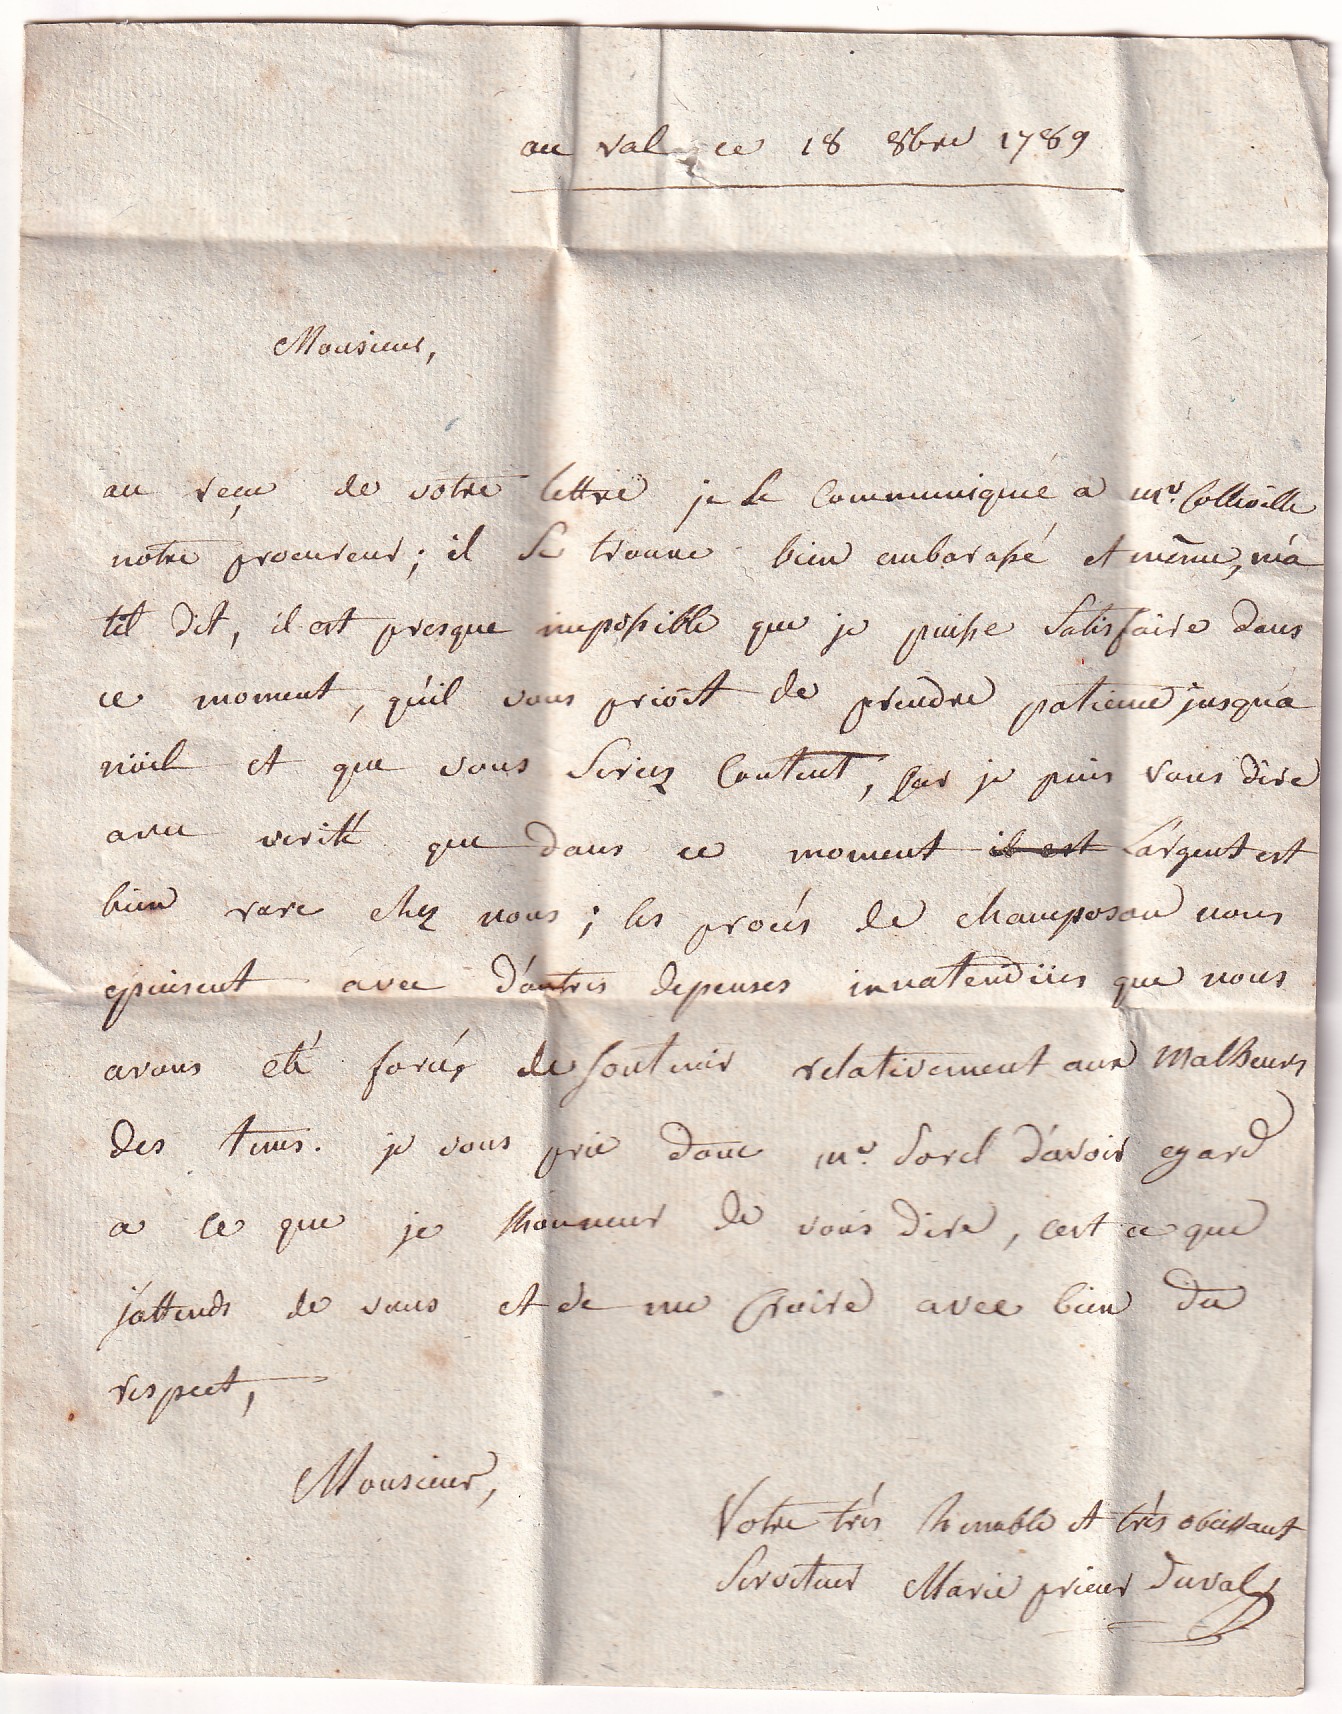 au val ce 18 8bre 1789
Monsieur,
au reçu de votre lettre je le communiqué a mr. Colleville
notre procureur; il se trouve bien embarassé et même, m'a
til dit, il est presque impossible que je puisse satisfaire dans
ce moment, qu'il vous prioit de prendre patience jusqu'a
nöel et que vous seriez content, car je puis vous dire
avec verité que dans ce moment il est l'argent est
bien rare chez nous; les procés de champosou nous
epuisent avec d'autres depenses innatendües que nous
avons eté forcés de soutenir relativement aux malheurs
des tems. je vous prie donc mr. Sorel d'avoir egard
a ce que je lhonneur de vous dire, cest ce que
j'attends de vous et de me croire avec bien du
respect,
Monsieur,
Votre trés humble et trés obeissant
Serviteur Marie prieur Duval